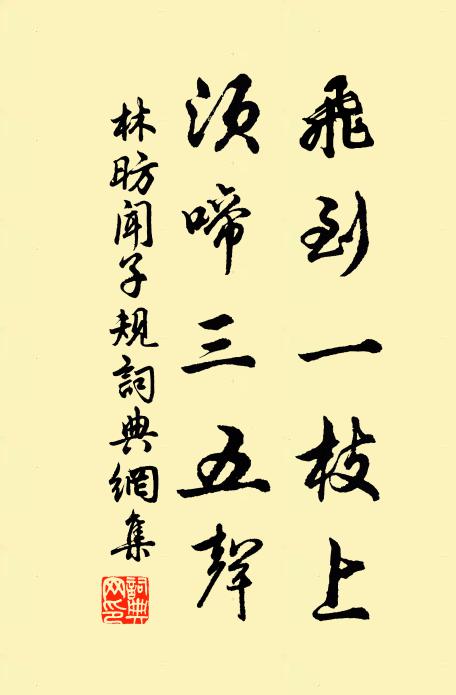 飛到一枝上
須啼三五聲
林昉聞子規詞典網集
詞典網印